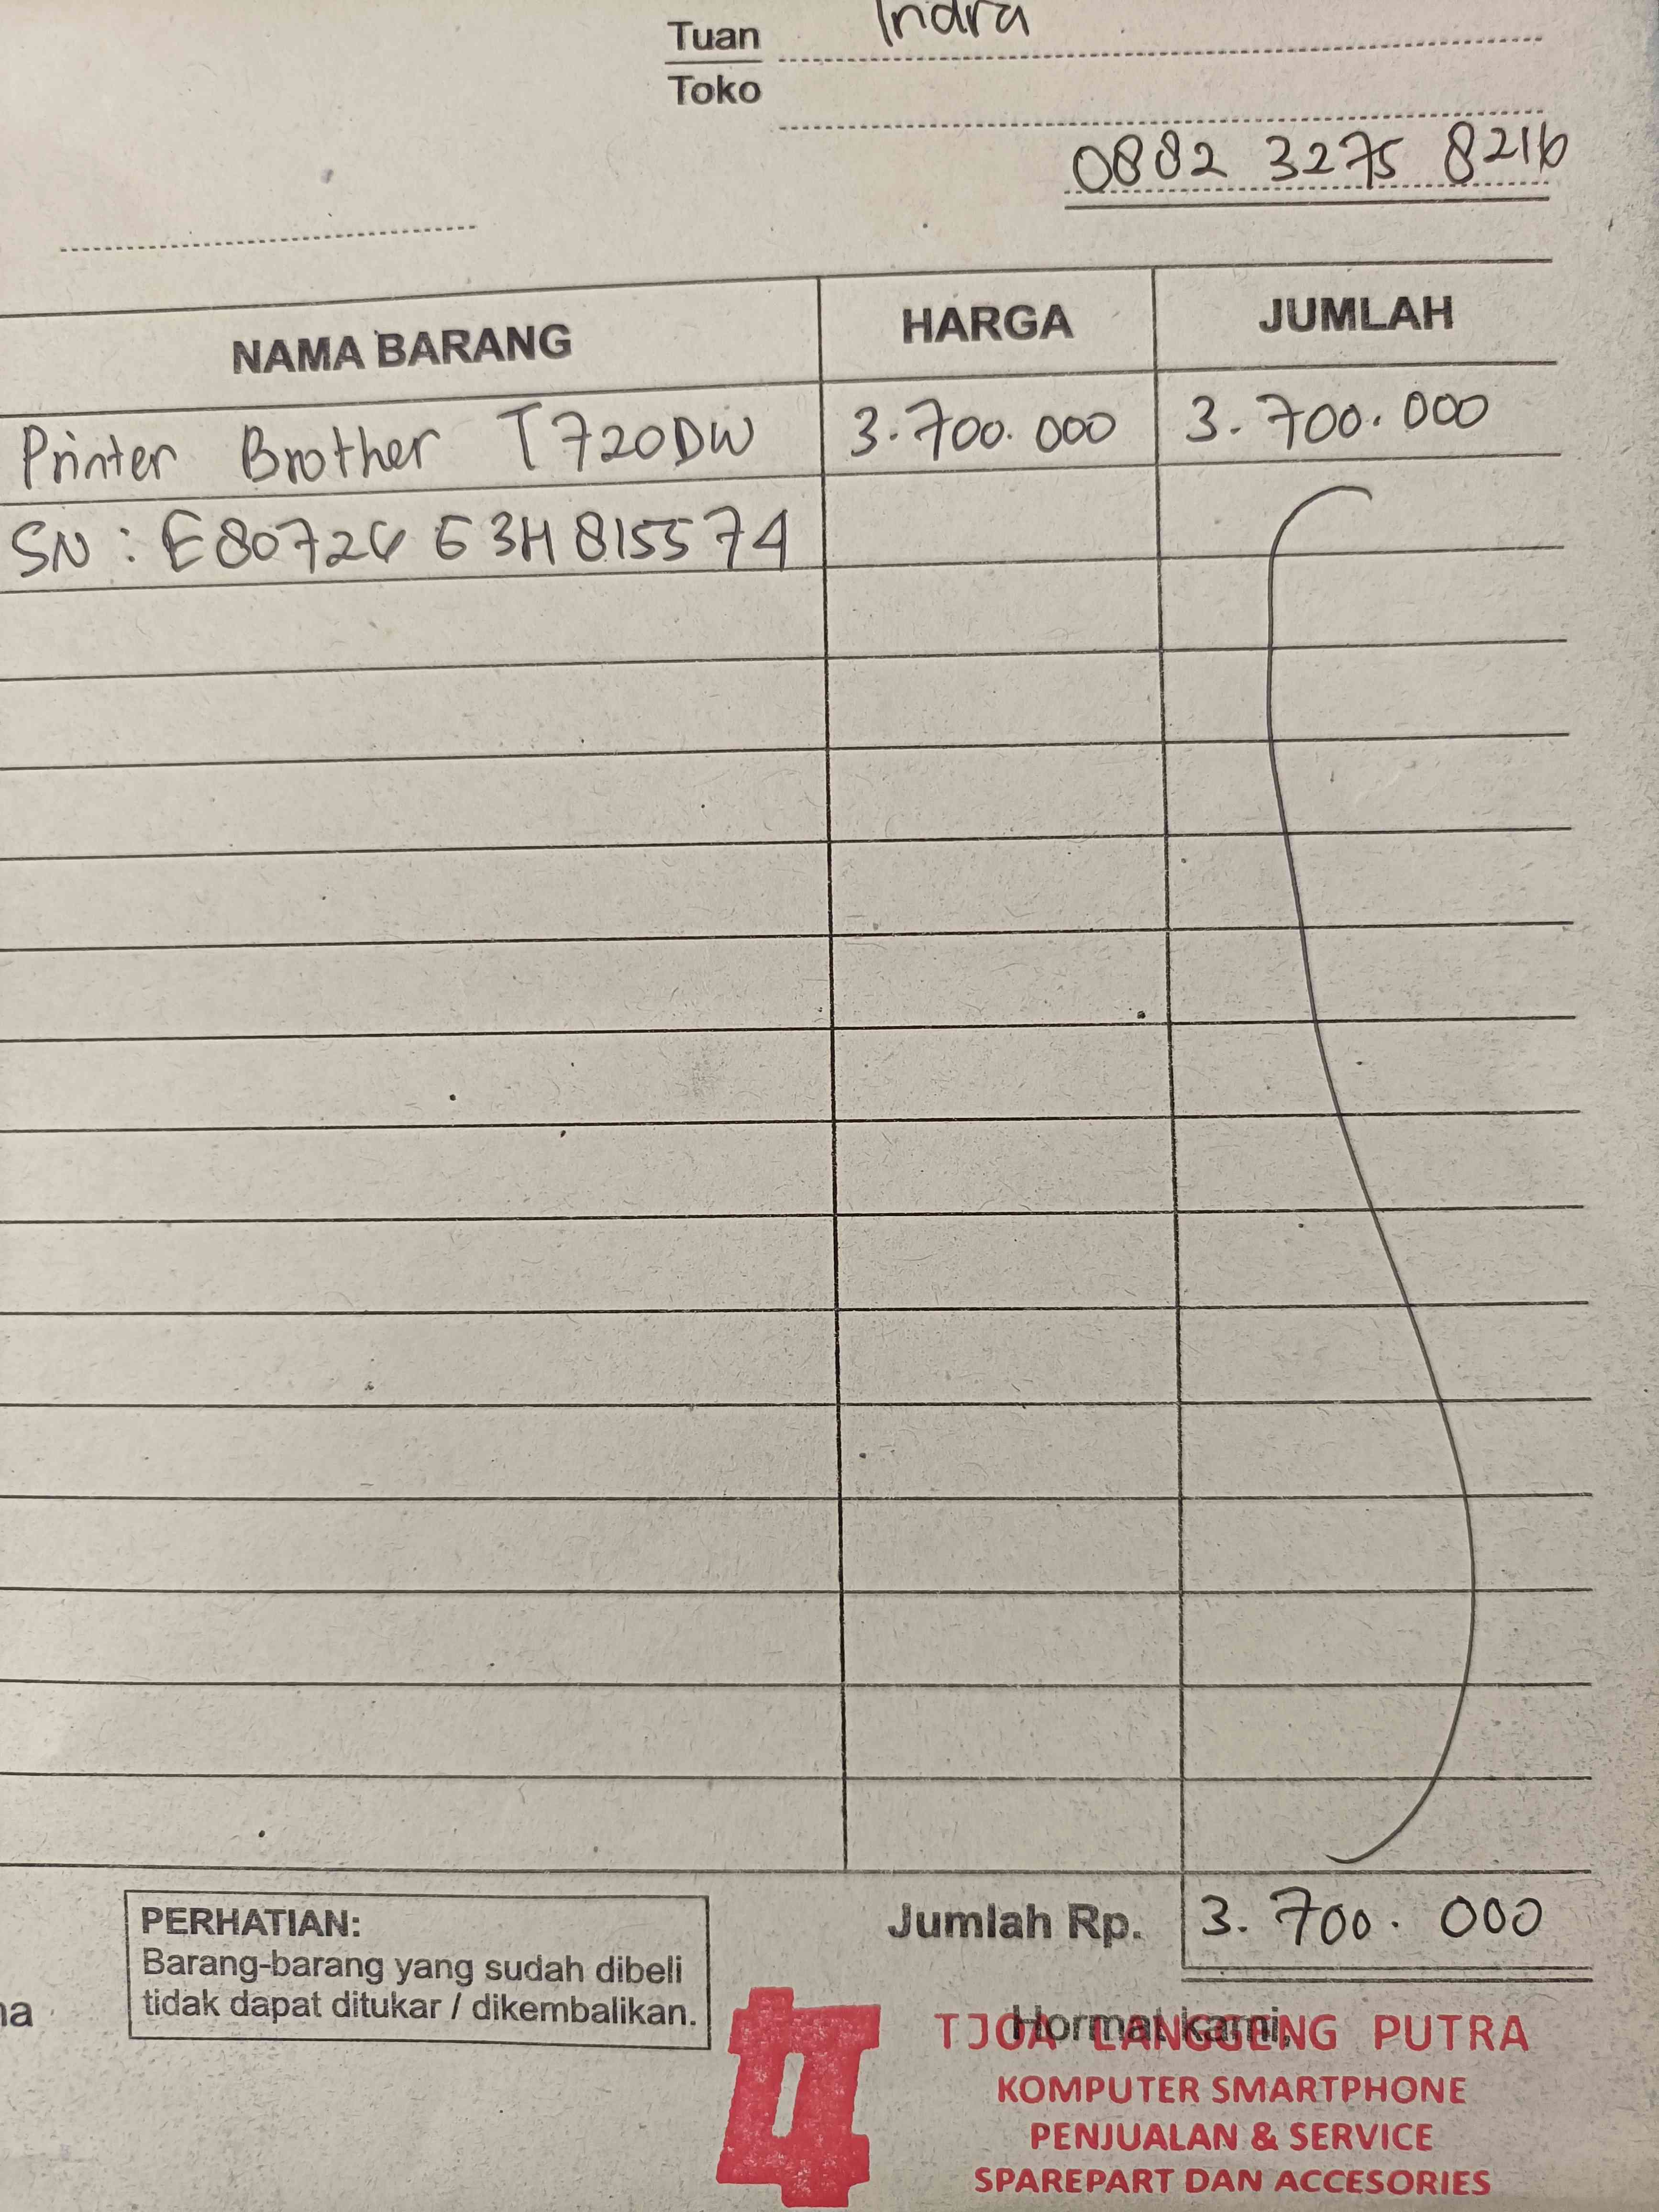 Tuan Indra
Toko
0882 3275 8216
NAMA BARANG HARGA JUMLAH
Printer Brother T720DW 3.700.000 3.700.000
SN : E80726 G3H815574
Jumlah Rp. 3.700.000
PERHATIAN:
Barang-barang yang sudah dibeli
tidak dapat ditukar / dikembalikan.
Hormat kami,
TJOA LANGGENG PUTRA
KOMPUTER SMARTPHONE
PENJUALAN & SERVICE
SPAREPART DAN ACCESORIES